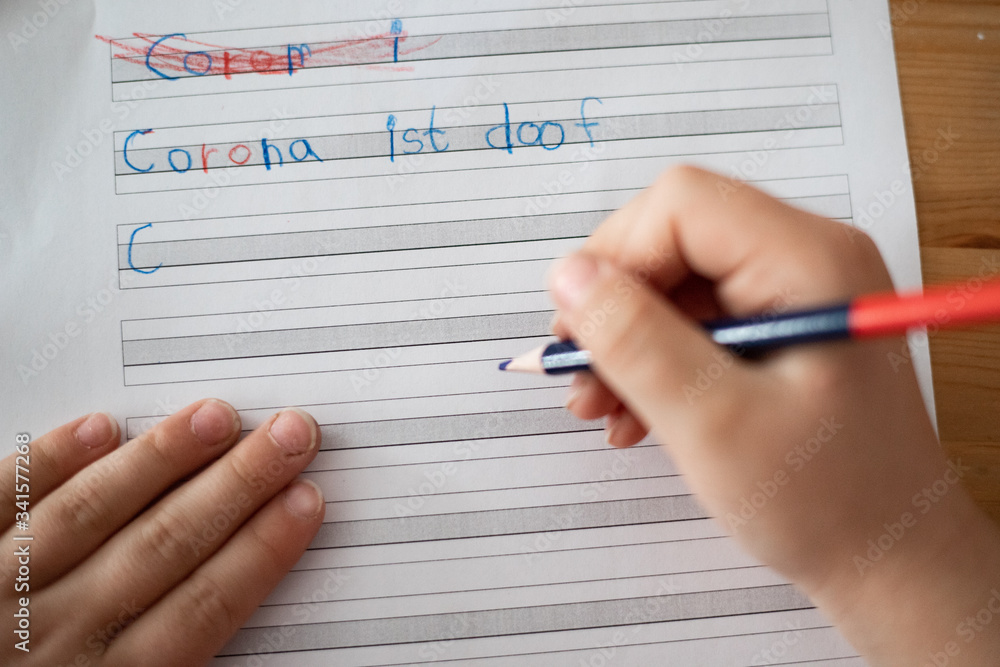 Corom i
Corona ist doof
C
Adobe Stock | #341577268